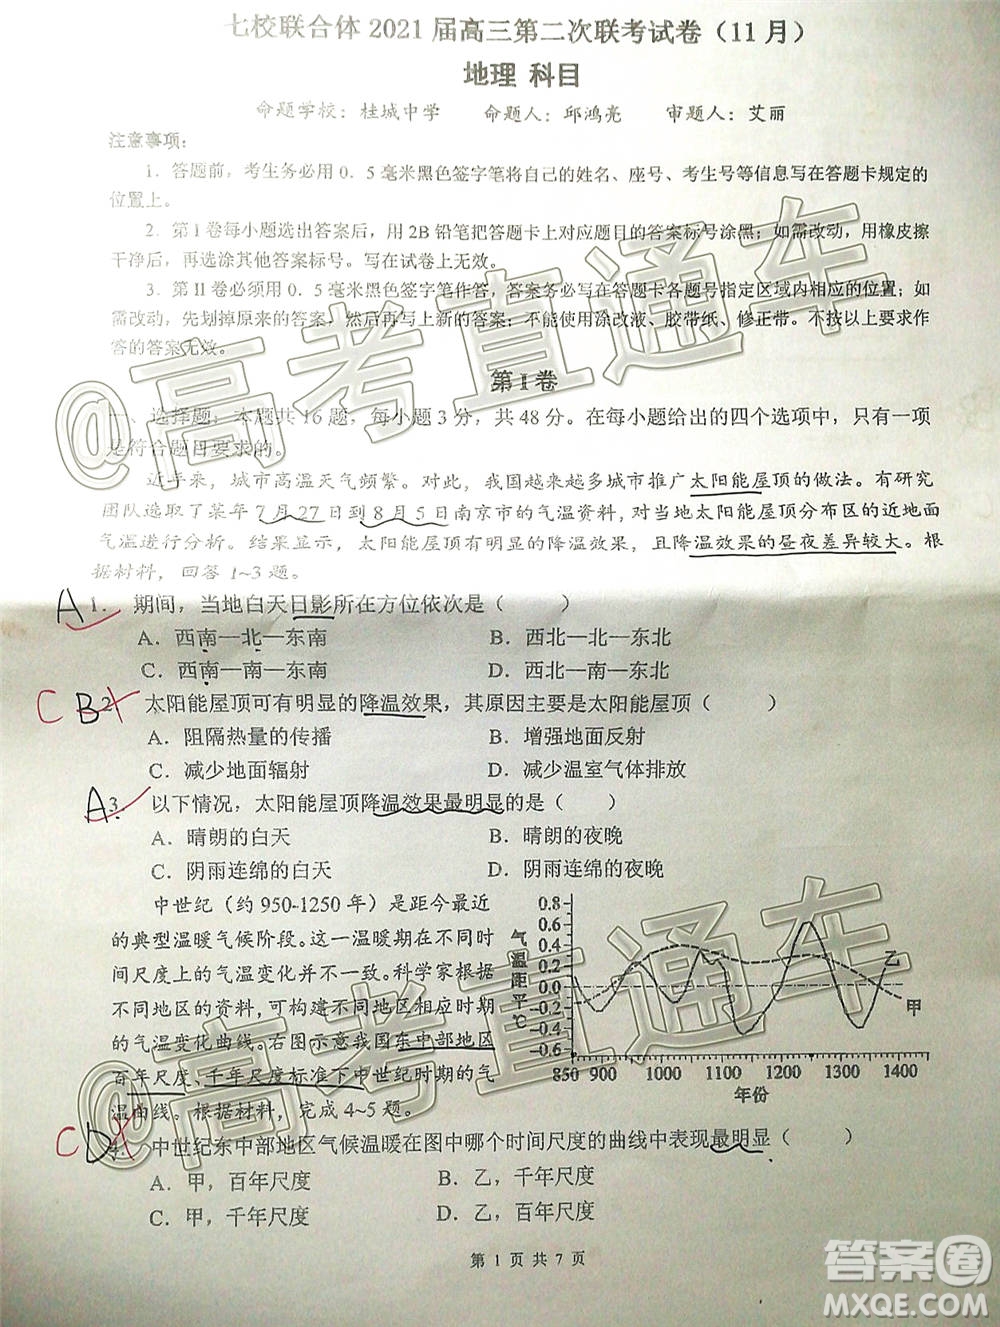 七校联合体 2021 届高三第二次联考试卷（11 月）
地理 科目
命题学校：桂城中学 命题人：邱鸿亮 审题人：艾丽
注意事项：
1．答题前，考生务必用 0．5 毫米黑色签字笔将自己的姓名、座号、考生号等信息写在答题卡规定的
位置上。
2．第 I 卷每小题选出答案后，用 2B 铅笔把答题卡上对应题目的答案标号涂黑；如需改动，用橡皮擦
干净后，再选涂其他答案标号。写在试卷上无效。
3．第 II 卷必须用 0．5 毫米黑色签字笔作答，答案务必写在答题卡各题号指定区域内相应的位置；如
需改动，先划掉原来的答案，然后再写上新的答案；不能使用涂改液、胶带纸、修正带。不按以上要求作
答的答案无效。
第 I 卷
一、选择题：本题共 16 题，每小题 3 分，共 48 分。在每小题给出的四个选项中，只有一项
是符合题目要求的。
近年来，城市高温天气频繁。对此，我国越来越多城市推广太阳能屋顶的做法。有研究
团队选取了某年 7 月 27 日到 8 月 5 日南京市的气温资料，对当地太阳能屋顶分布区的近地面
气温进行分析。结果显示，太阳能屋顶有明显的降温效果，且降温效果的昼夜差异较大。根
据材料，回答 1~3 题。
A 1．期间，当地白天日影所在方位依次是（ ）
A．西南—北—东南 B．西北—北—东北
C．西南—南—东南 D．西北—南—东北
C B 2．太阳能屋顶可有明显的降温效果，其原因主要是太阳能屋顶（ ）
A．阻隔热量的传播 B．增强地面反射
C．减少地面辐射 D．减少温室气体排放
A 3．以下情况，太阳能屋顶降温效果最明显的是（ ）
A．晴朗的白天 B．晴朗的夜晚
C．阴雨连绵的白天 D．阴雨连绵的夜晚
中世纪（约 950-1250 年）是距今最近
的典型温暖气候阶段。这一温暖期在不同时
间尺度上的气温变化并不一致。科学家根据
不同地区的资料，可构建不同地区各时期的
气温变化曲线。右图示意我国东中部地区
百年尺度、千年尺度标准下中世纪时期的气
温曲线。根据材料，完成 4~5 题。
气温距平℃
0.8
0.6
0.4
0.2
0.0
-0.2
-0.4
-0.6
乙
甲
850 900 1000 1100 1200 1300 1400
年份
C D 4．中世纪东中部地区气候温暖在图中哪个时间尺度的曲线中表现最明显（ ）
A．甲，百年尺度 B．乙，千年尺度
C．甲，千年尺度 D．乙，百年尺度
第 1 页 共 7 页
@高考直通车
@高考直通车
答案圈
MXQE.COM